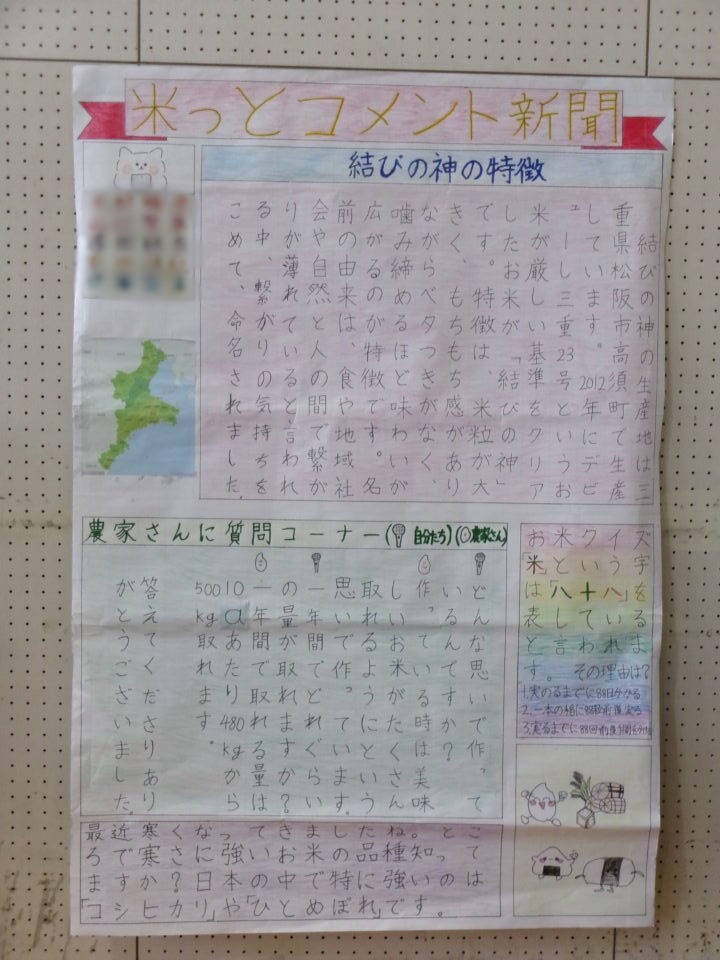 米っとコメント新聞
結びの神の特徴
結びの神の生産地は三
重県松阪市高須町で生産
しています。2012年にデビ
ューし三重23号というお
米が厳しい基準をクリア
したお米が「結びの神」
です。特徴は、米粒が大
きく、もちもち感があり
ながらベタつきがなく、
噛み締めるほど味わいが
広がるのが特徴です。名
前の由来は、食や地域社
会や自然と人の間で繋が
りが薄れていると言われ
る中、繋がりの気持ちを
こめて、命名されました。
農家さんに質問コーナー(自分たち)(農家さん)
どんな思いで作って
いるんですか?
作っている時は美味
しいお米がたくさん
取れるようにという
思いで作っています。
一年間でどれぐらい
の量が取れますか?
一年間で取れる量は
10aあたり480kgから
500kg取れます。
答えてくださりあり
がとうございました。
お米クイズ
「米」という字
は「八十八」を
表している
と言われま
す。その理由は?
1.実のるまでに88日かかる
2.一本の稲に88粒前後実る
3.実るまでに88回前後手間をかける
最近寒くなってきましたね。とこ
ろで寒さに強いお米の品種知って
ますか?日本の中で特に強いのは
「コシヒカリ」や「ひとめぼれ」です。